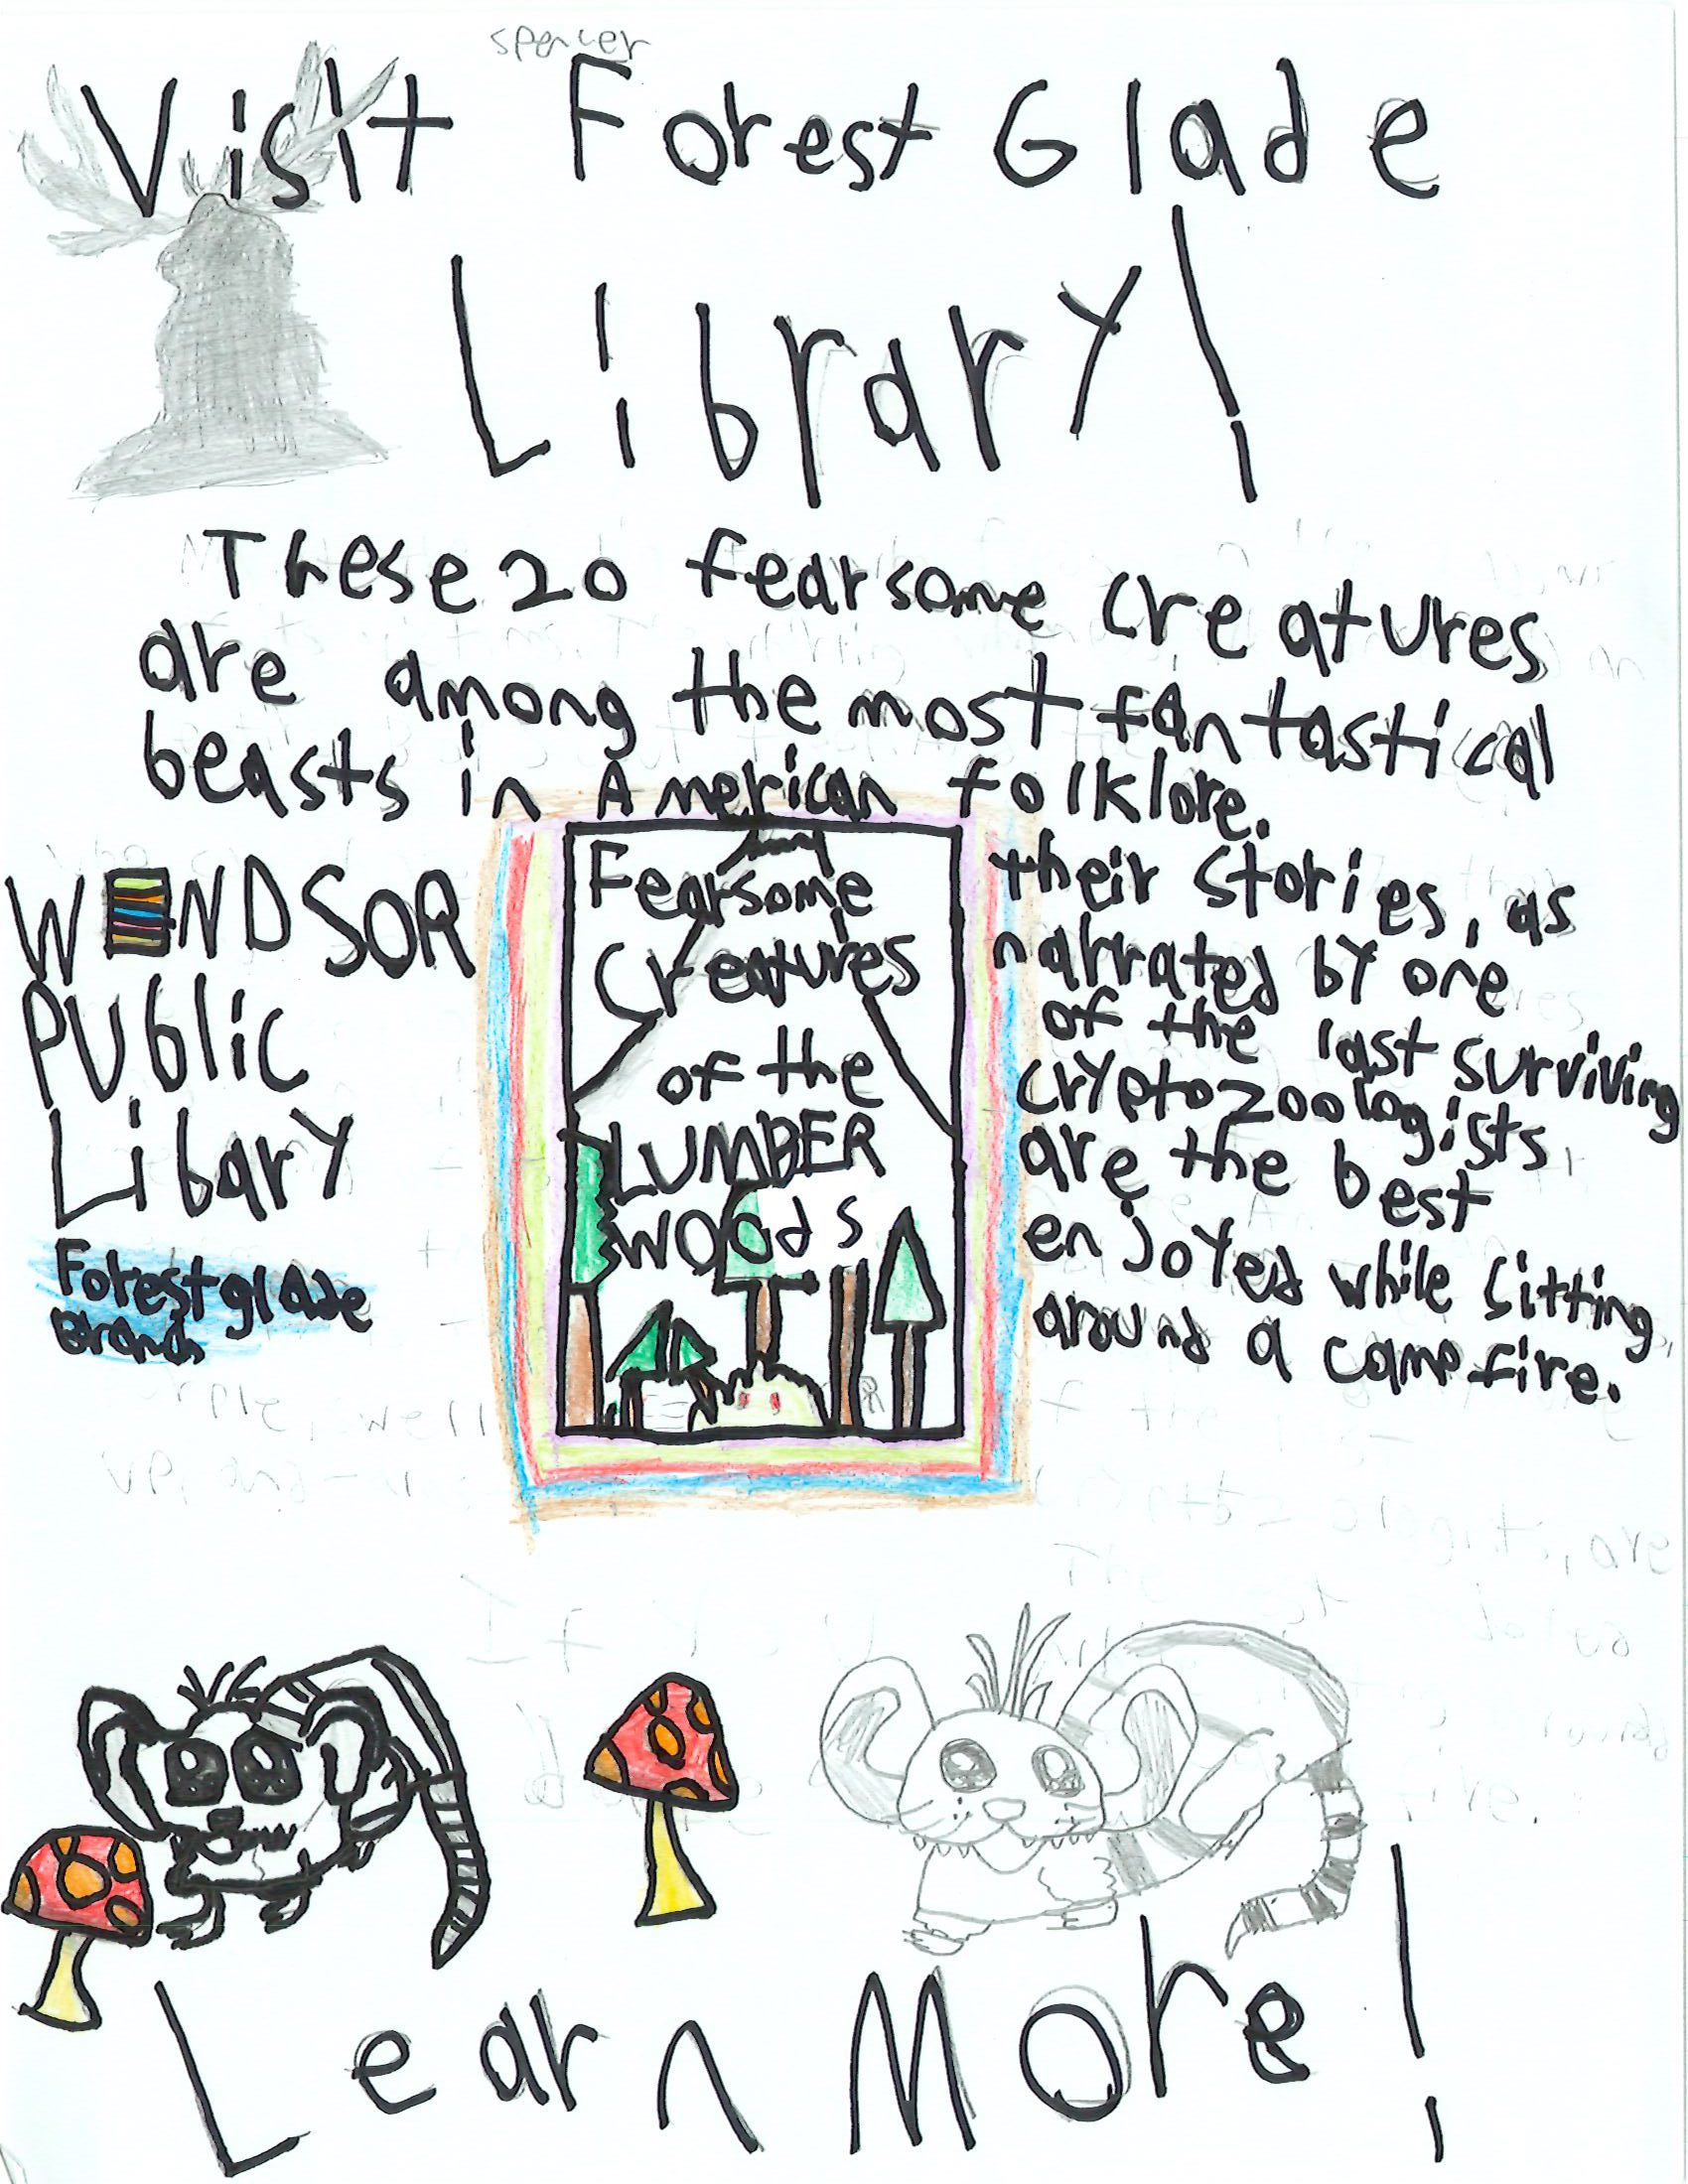 spencer
Visit Forest Glade
Library!
These 20 fearsome creatures
are among the most fantastical
beasts in American folklore.
their stories, as
narrated by one
of the last surviving
cryptozoologists,
are the best
enjoyed while sitting
around a campfire.
WINDSOR
PUblic
Libary
Forestglade
Branch
Fearsome
Creatures
of the
LUMBER
WOOdS
Learn More!